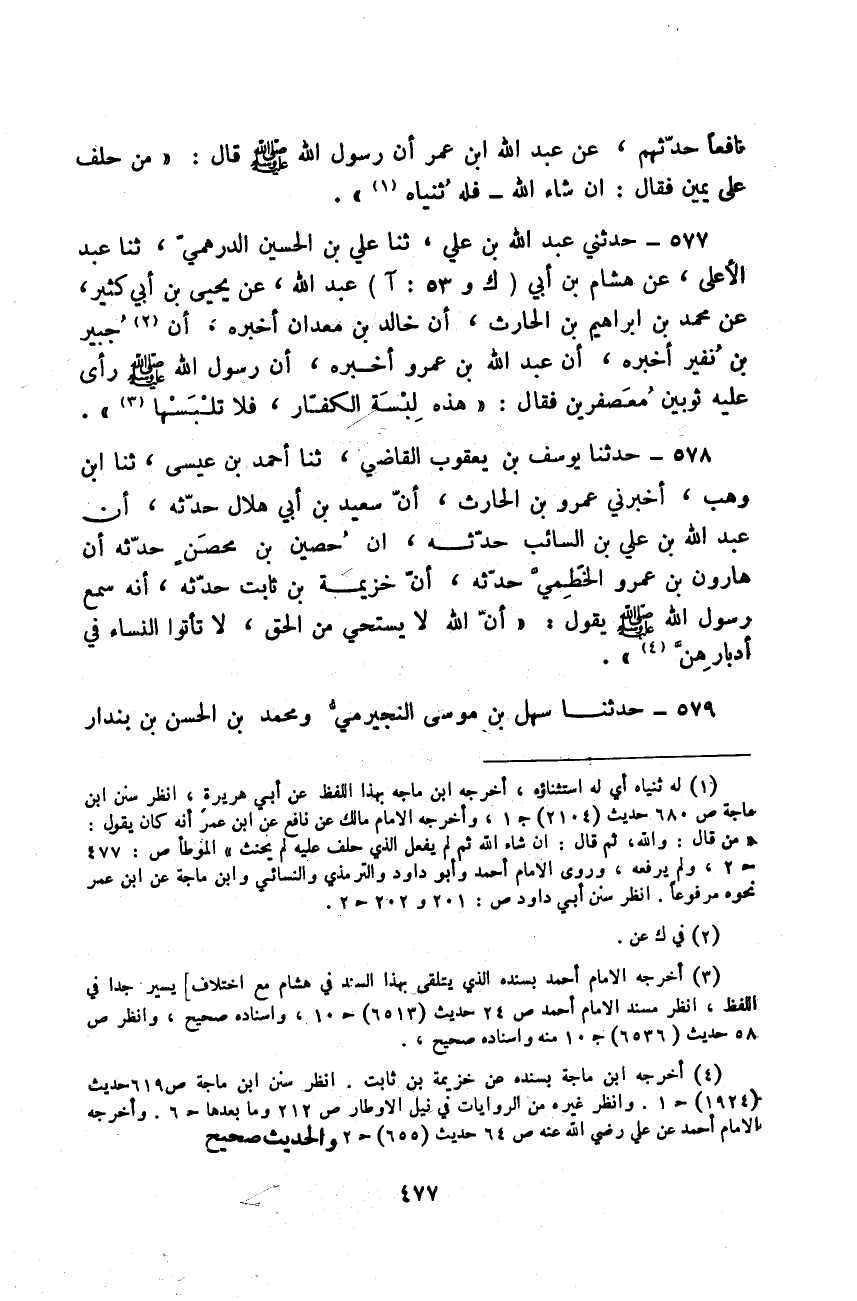 نافعاً حدّثهم ، عن عبد الله ابن عمر أن رسول الله ﷺ قال : « من حلف
على يمين فقال : ان شاء الله ــ فله ُثنياه (١) » .
٥٧٧ ــ حدثني عبد الله بن علي ، ثنا علي بن الحسين الدرهميّ ، ثنا عبد
الأعلى ، عن هشام بن أبي ( ك و ٥٣ : آ ) عبد الله ، عن يحيى بن أبي كثير ،
عن محمد بن ابراهيم بن الحارث ، أن خالد بن معدان أخبره ، أن (٢) ُجبير
بن ُنفير أخبره ، أن عبد الله بن عمرو أخـبره ، أن رسول الله ﷺ رأى
عليه ثوبين ُمعَصفرين فقال : « هذه لِبْسَة الكفـّار ، فلا تلـْبَسْها (٣) » .
٥٧٨ ــ حدثنا يوسف بن يعقوب القاضي ، ثنا أحمد بن عيسى ، ثنا ابن
وهب ، أخبرني عمرو بن الحارث ، أنّ سعيد بن أبي هلال حدّثه ، أن
عبد الله بن علي بن السائب حدّثـــه ، ان ُحصين بن محصَنٍ حدّثه أن
هارون بن عمرو الخَطْمِيَّ حدّثه ، أنّ خزيمَـــة بن ثابت حدّثه ، أنه سمع
رسول الله ﷺ يقول : « أنّ الله لا يستحي من الحق ، لا تأتوا النساء في
أدبارِهنَّ (٤) » .
٥٧٩ ــ حدثنـــا سهل بن موسى النجيرميُّ ومحمد بن الحسن بن بندار
(١) له ثنياه أي له استثناؤه ، أخرجه ابن ماجه بهذا اللفظ عن أبي هريرة ، انظر سنن ابن
ماجة ص ٦٨٠ حديث (٢١٠٤) ج ١ ، وأخرجه الامام مالك عن نافع عن ابن عمر أنه كان يقول :
« من قال : والله، ثم قال : ان شاء الله ثم لم يفعل الذي حلف عليه لم يحنث » الموطأ ص : ٤٧٧
ج ٢ ، ولم يرفعه ، وروى الامام أحمد وأبو داود والترمذي والنسائي وابن ماجة عن ابن عمر
نحوه مرفوعاً . انظر سنن أبي داود ص : ٢٠١ و ٢٠٢ ج ٢ .
(٢) في ك عن .
(٣) أخرجه الامام أحمد بسنده الذي يتلقى بهذا السند في هشام مع اختلاف] يسير جدا في
اللفظ ، انظر مسند الامام أحمد ص ٢٤ حديث (٦٥١٣) ج ١٠ ، واسناده صحيح ، وانظر ص
٥٨ حديث ( ٦٥٣٦) ج ١٠ منه واسناده صحيح ، .
(٤) أخرجه ابن ماجة بسنده عن خزيمة بن ثابت . انظر سنن ابن ماجة ص٦١٩حديث
(١٩٢٤) ج ١ . وانظر غيره من الروايات في نيل الاوطار ص ٢١٢ وما بعدها ج ٦ . وأخرجه
الامام أحمد عن علي رضي الله عنه ص ٦٤ حديث (٦٥٥) ج ٢ والحديث صحيح
٤٧٧